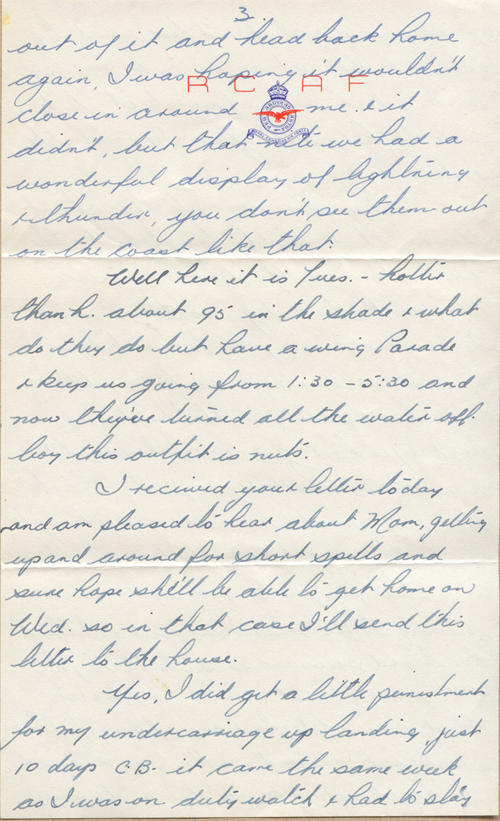 3.
out of it and head back home
again, I was hoping it wouldn't
R C A F
close in around me. & it
didn't, but that nite we had a
wonderful display of lightning
& thunder, you don't see them out
on the coast like that.
Well here it is Tues. - hotter
than h. about 95 in the shade & what
do they do but have a wing Parade
& keep us going from 1:30 - 5:30 and
now they've turned all the water off.
boy this outfit is nuts.
I received your letter today
and am pleased to hear about Mom, getting
up and around for short spells and
sure hope she'll be able to get home on
Wed. so in that case I'll send this
letter to the house.
Yes, I did get a little punishment
for my undercarriage up landing, just
10 days C.B. it came the same week
as I was on duty watch & had to stay